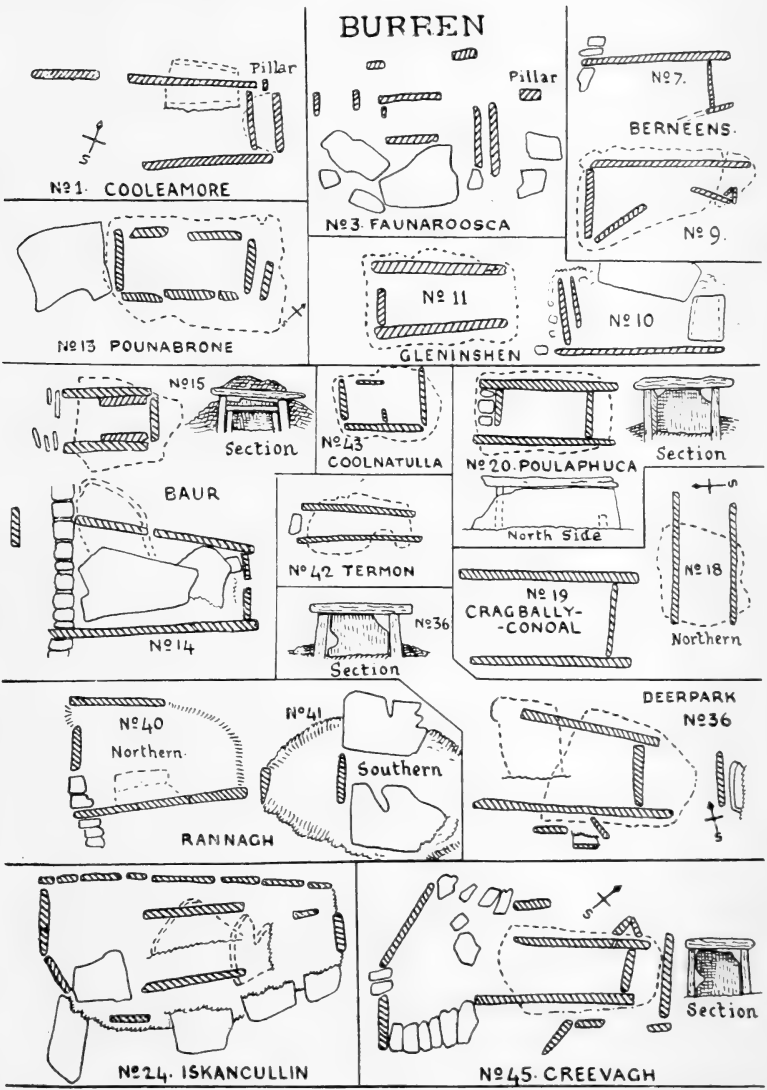 BURREN
Pillar
S
Nº1. COOLEAMORE
Pillar
Nº3. FAUNAROOSCA
Nº7.
BERNEENS.
Nº9.
Nº13 POUNABRONE
Nº 11
GLENINSHEN
Nº10
Nº15
Section
BAUR
Nº14
Nº43
COOLNATULLA
Nº20. POULAPHUCA
Section
North Side
Nº42 TERMON
Nº36
Section
Nº 19
CRAGBALLY-
-CONOAL
S
Nº18
Northern
Nº40
Northern.
RANNAGH
Nº41
Southern
DEERPARK
Nº36
S
Nº24. ISKANCULLIN
S
Section
Nº45. CREEVAGH